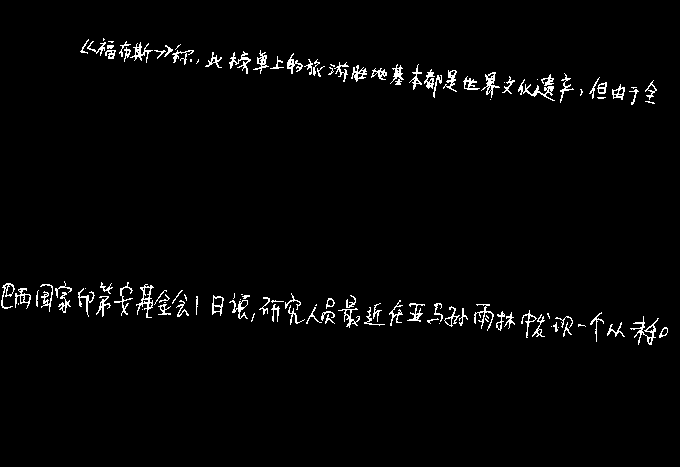 《福布斯》称,此榜单上的旅游胜地基本都是世界文化遗产,但由于全
巴西国家印第安基金会1日说,研究人员最近在亚马孙雨林中发现一个从未和